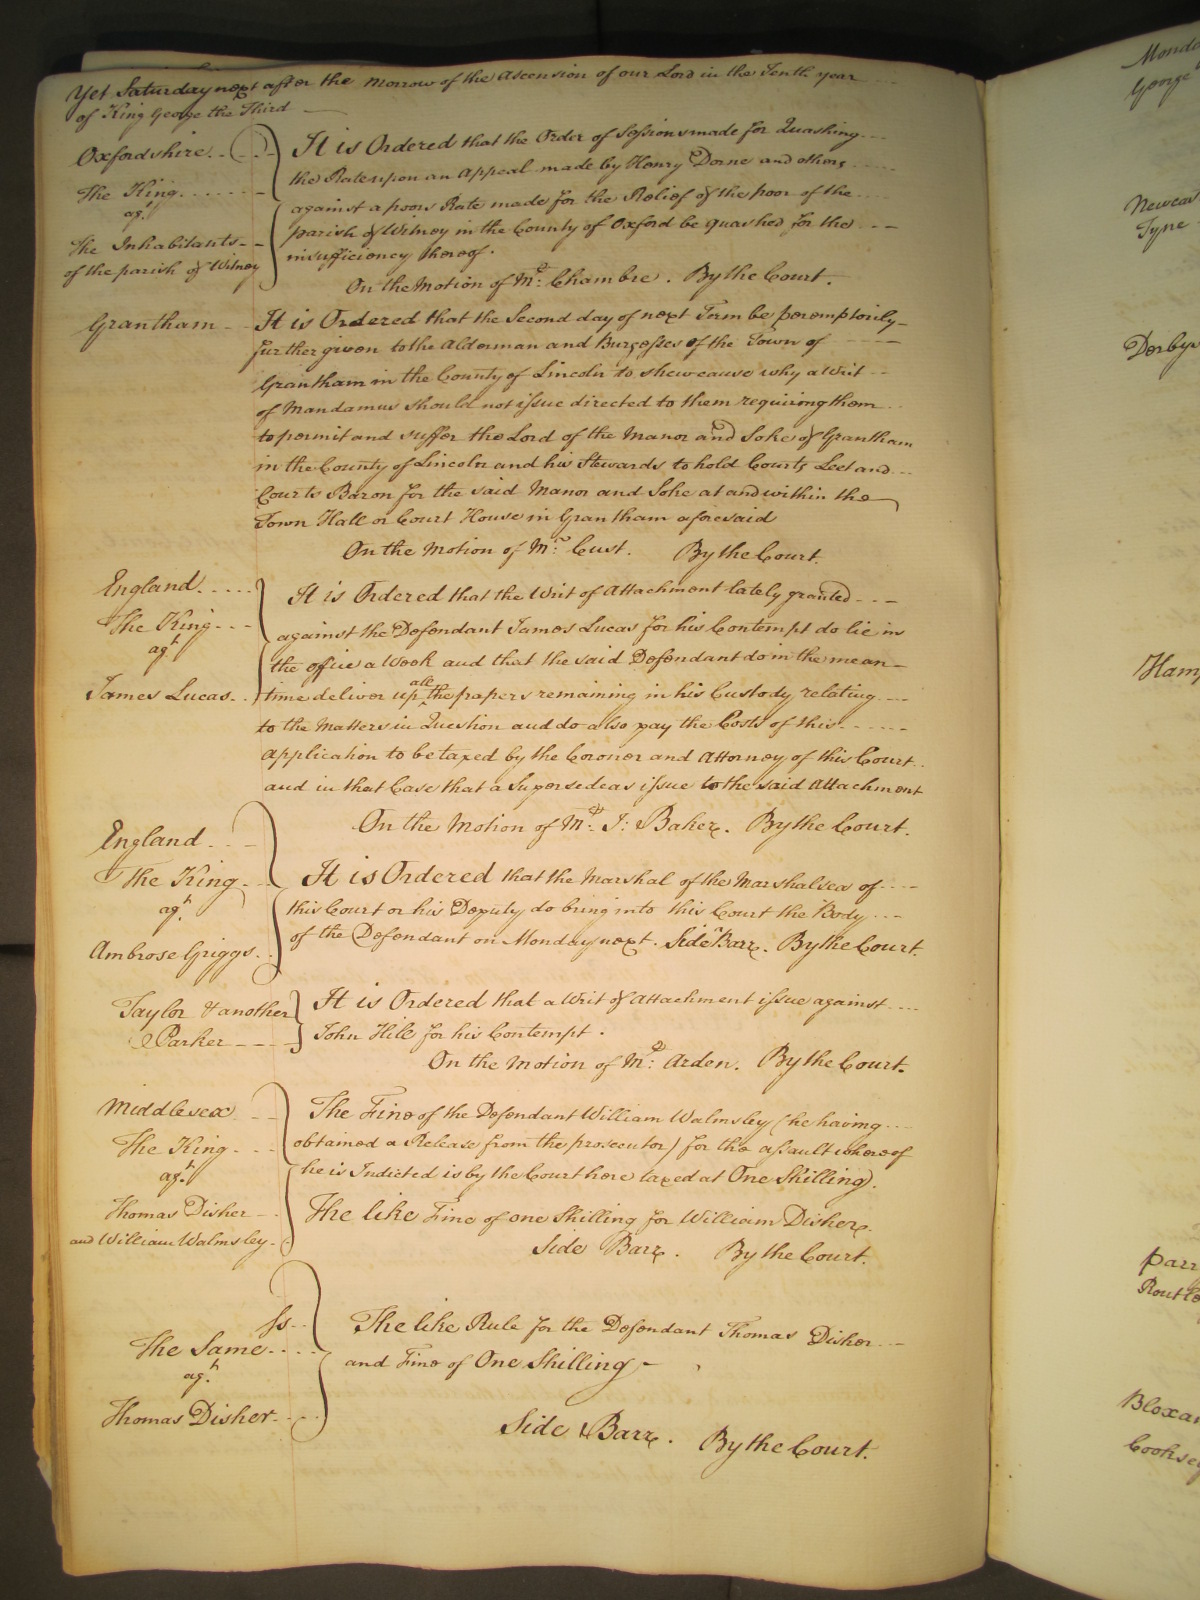 Yet Saturday next after the Morrow of the Ascension of our Lord in the Tenth year
of King George the Third
Oxfordshire
The King
agt
The Inhabitants
of the parish of Witney
It is Ordered that the Order of Sessions made for Quashing
the Rate upon an Appeal made by Henry Dorne and others
against a poors Rate made for the Relief of the poor of the
parish of Witney in the County of Oxford be quashed for the
insufficiency thereof.
On the Motion of Mr: Chambre. By the Court.
Grantham
It is Ordered that the Second day of next Term be peremptorily
further given to the Alderman and Burgesses of the Town of
Grantham in the County of Lincoln to shew cause why a Writ
of Mandamus should not issue directed to them requiring them
to permit and suffer the Lord of the Manor and Soke of Grantham
in the County of Lincoln and his Stewards to hold Courts Leet and
Courts Baron for the said Manor and Soke at and within the
Town Hall or Court House in Grantham aforesaid
On the Motion of Mr: Cust. By the Court.
England
The King
agt
James Lucas
It is Ordered that the Writ of Attachment lately granted
against the Defendant James Lucas for his Contempt do lie in
the office a Week and that the said Defendant do in the mean
time deliver up all the papers remaining in his Custody relating
to the Matters in Question and do also pay the Costs of this
application to be taxed by the Coroner and Attorney of this Court
and in that Case that a Supersedeas issue to the said Attachment
On the Motion of Mr: J: Baker. By the Court.
England
The King
agt
Ambrose Griggs
It is Ordered that the Marshal of the Marshalsea of
this Court or his Deputy do bring into this Court the Body
of the Defendant on Monday next. Side Barr. By the Court.
Taylor & another
e Parker
It is Ordered that a Writ of Attachment issue against
John Hill for his Contempt.
On the Motion of Mr: Arden. By the Court.
Middlesex
The King
agt
Thomas Disher
and William Walmsley
The Fine of the Defendant William Walmsley (he having
obtained a Release from the prosecutor) for the assault whereof
he is Indicted is by the Court here taxed at One Shilling.
The like Fine of one Shilling for William Disher
Side Barr. By the Court.
ss
The Same
agt
Thomas Disher
The like Rule for the Defendant Thomas Disher
and Fine of One Shilling
Side Barr. By the Court.
Monda
George
Newcas
Tyne
Derbys
Hamp
Parr
Routle
Bloxa
Cookse